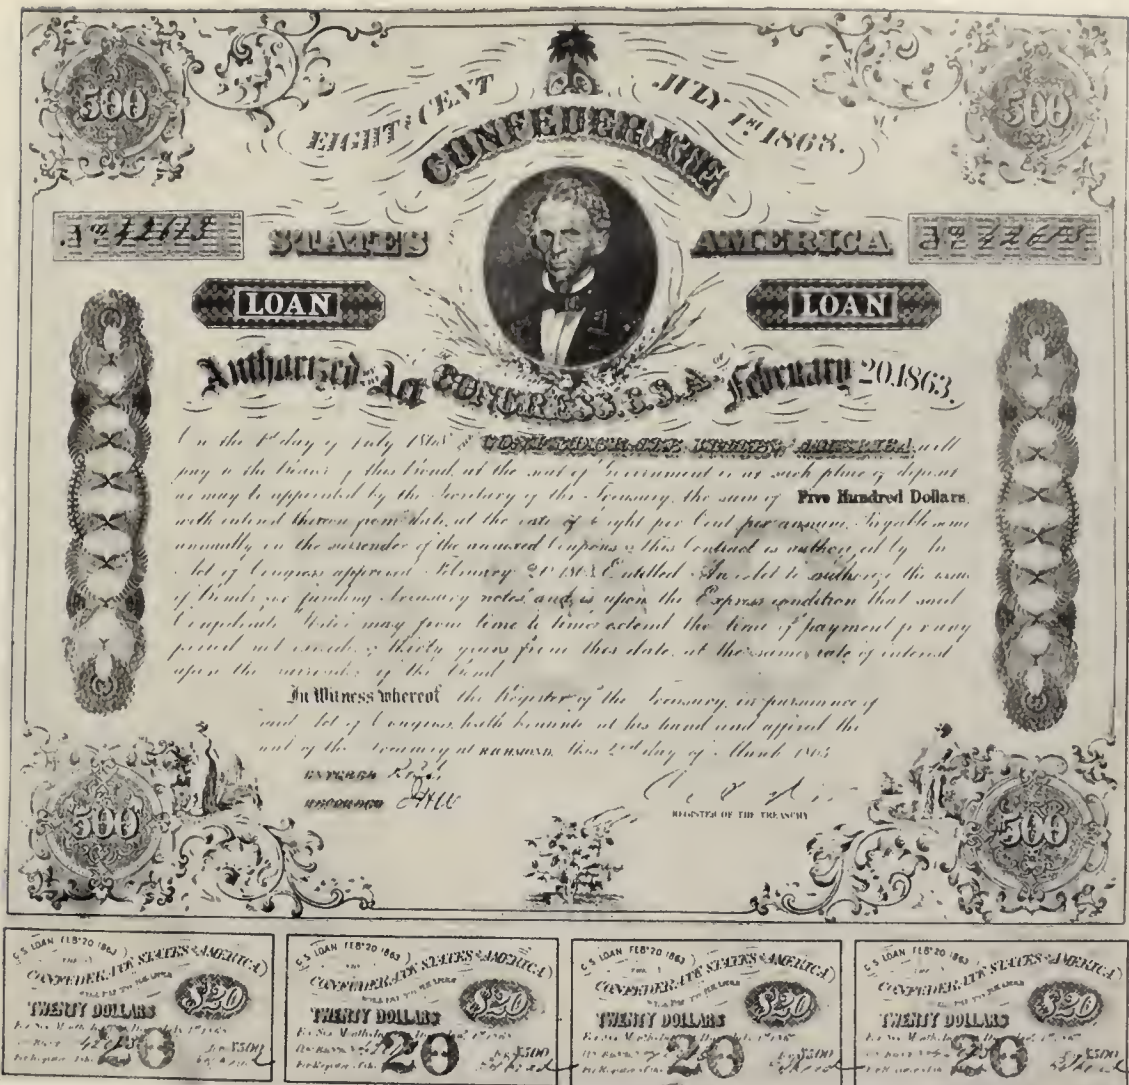 500
500
EIGHT PR CENT
JULY 1ST 1868.
CONFEDERATE
STATES
AMERICA
LOAN
LOAN
Authorized Act
CONGRESS, C.S.A.
OF February 20. 1863.
On the 1st day of July 1868 the CONFEDERATE STATES AMERICA will
pay to the bearer of this Bond, at the seat of Government or at such place of deposit
as may be appointed by the Secretary of the Treasury, the sum of Five Hundred Dollars
with interest thereon from date, at the rate of Eight per Cent per annum, Payable semi
annually on the surrender of the annexed Coupons this Contract is authorized by
Act of Congress approved February 20 1863 Entitled An Act to authorize the issue
of bonds for funding Treasury notes, and is upon the Express condition that said
may from time to time extend the time of payment for any
period not exceeding thirty years from this date, at the same rate of interest
upon the surrender of the Bond
In Witness whereof the Register of the Treasury, in pursuance of
said Act of Congress, hath hereunto set his hand and affixed the
seal of the Treasury at RICHMOND, this 2nd day of March 1863
ENTERED
RECORDED
REGISTER OF THE TREASURY
500
500
C.S. LOAN FEBY 20 1863
CONFEDERATE STATES AMERICA
WILL PAY TO BEARER
TWENTY DOLLARS
$20
For Six Months
20
$500
C.S. LOAN FEBY 20 1863
CONFEDERATE STATES AMERICA
WILL PAY TO BEARER
TWENTY DOLLARS
$20
For Six Months
20
$500
C.S. LOAN FEBY 20 1863
CONFEDERATE STATES AMERICA
WILL PAY TO BEARER
TWENTY DOLLARS
$20
For Six Months
20
$500
C.S. LOAN FEBY 20 1863
CONFEDERATE STATES AMERICA
WILL PAY TO BEARER
TWENTY DOLLARS
$20
For Six Months
20
$500